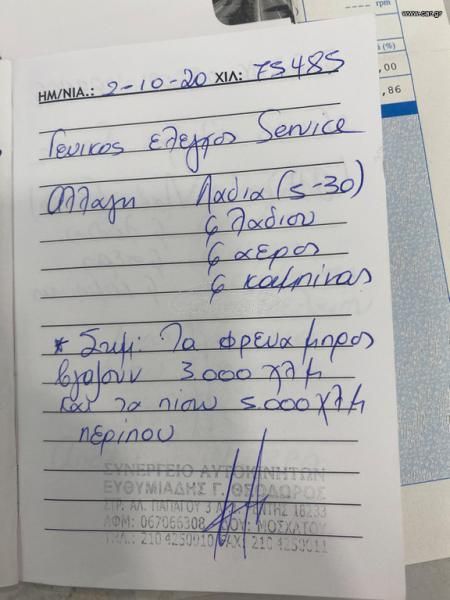 www.car.gr
rpm
(%)
,00
,86
ΗΜ/ΝΙΑ.: 2-10-20 ΧΙΛ: 75485
Γενικος ελεγχος Service
Αλλαγη Λαδια (5-30)
φ λαδιου
φ αερος
φ καμπινας
* Σημ: Τα φρενα μπρος
βγαζουν 3.000 χλμ
και τα πισω 5.000 χλμ
περιπου
ΣΥΝΕΡΓΕΙΟ ΑΥΤΟΚΙΝΗΤΩΝ
ΕΥΘΥΜΙΑΔΗΣ Γ. ΘΕΟΔΩΡΟΣ
ΣΤΡ. ΑΛ. ΠΑΠΑΓΟΥ 3 18233
ΑΦΜ: 067066308 ΔΟΥ: ΜΟΣΧΑΤΟΥ
ΤΗΛ.: 210 4250010 FAX: 210 4250011